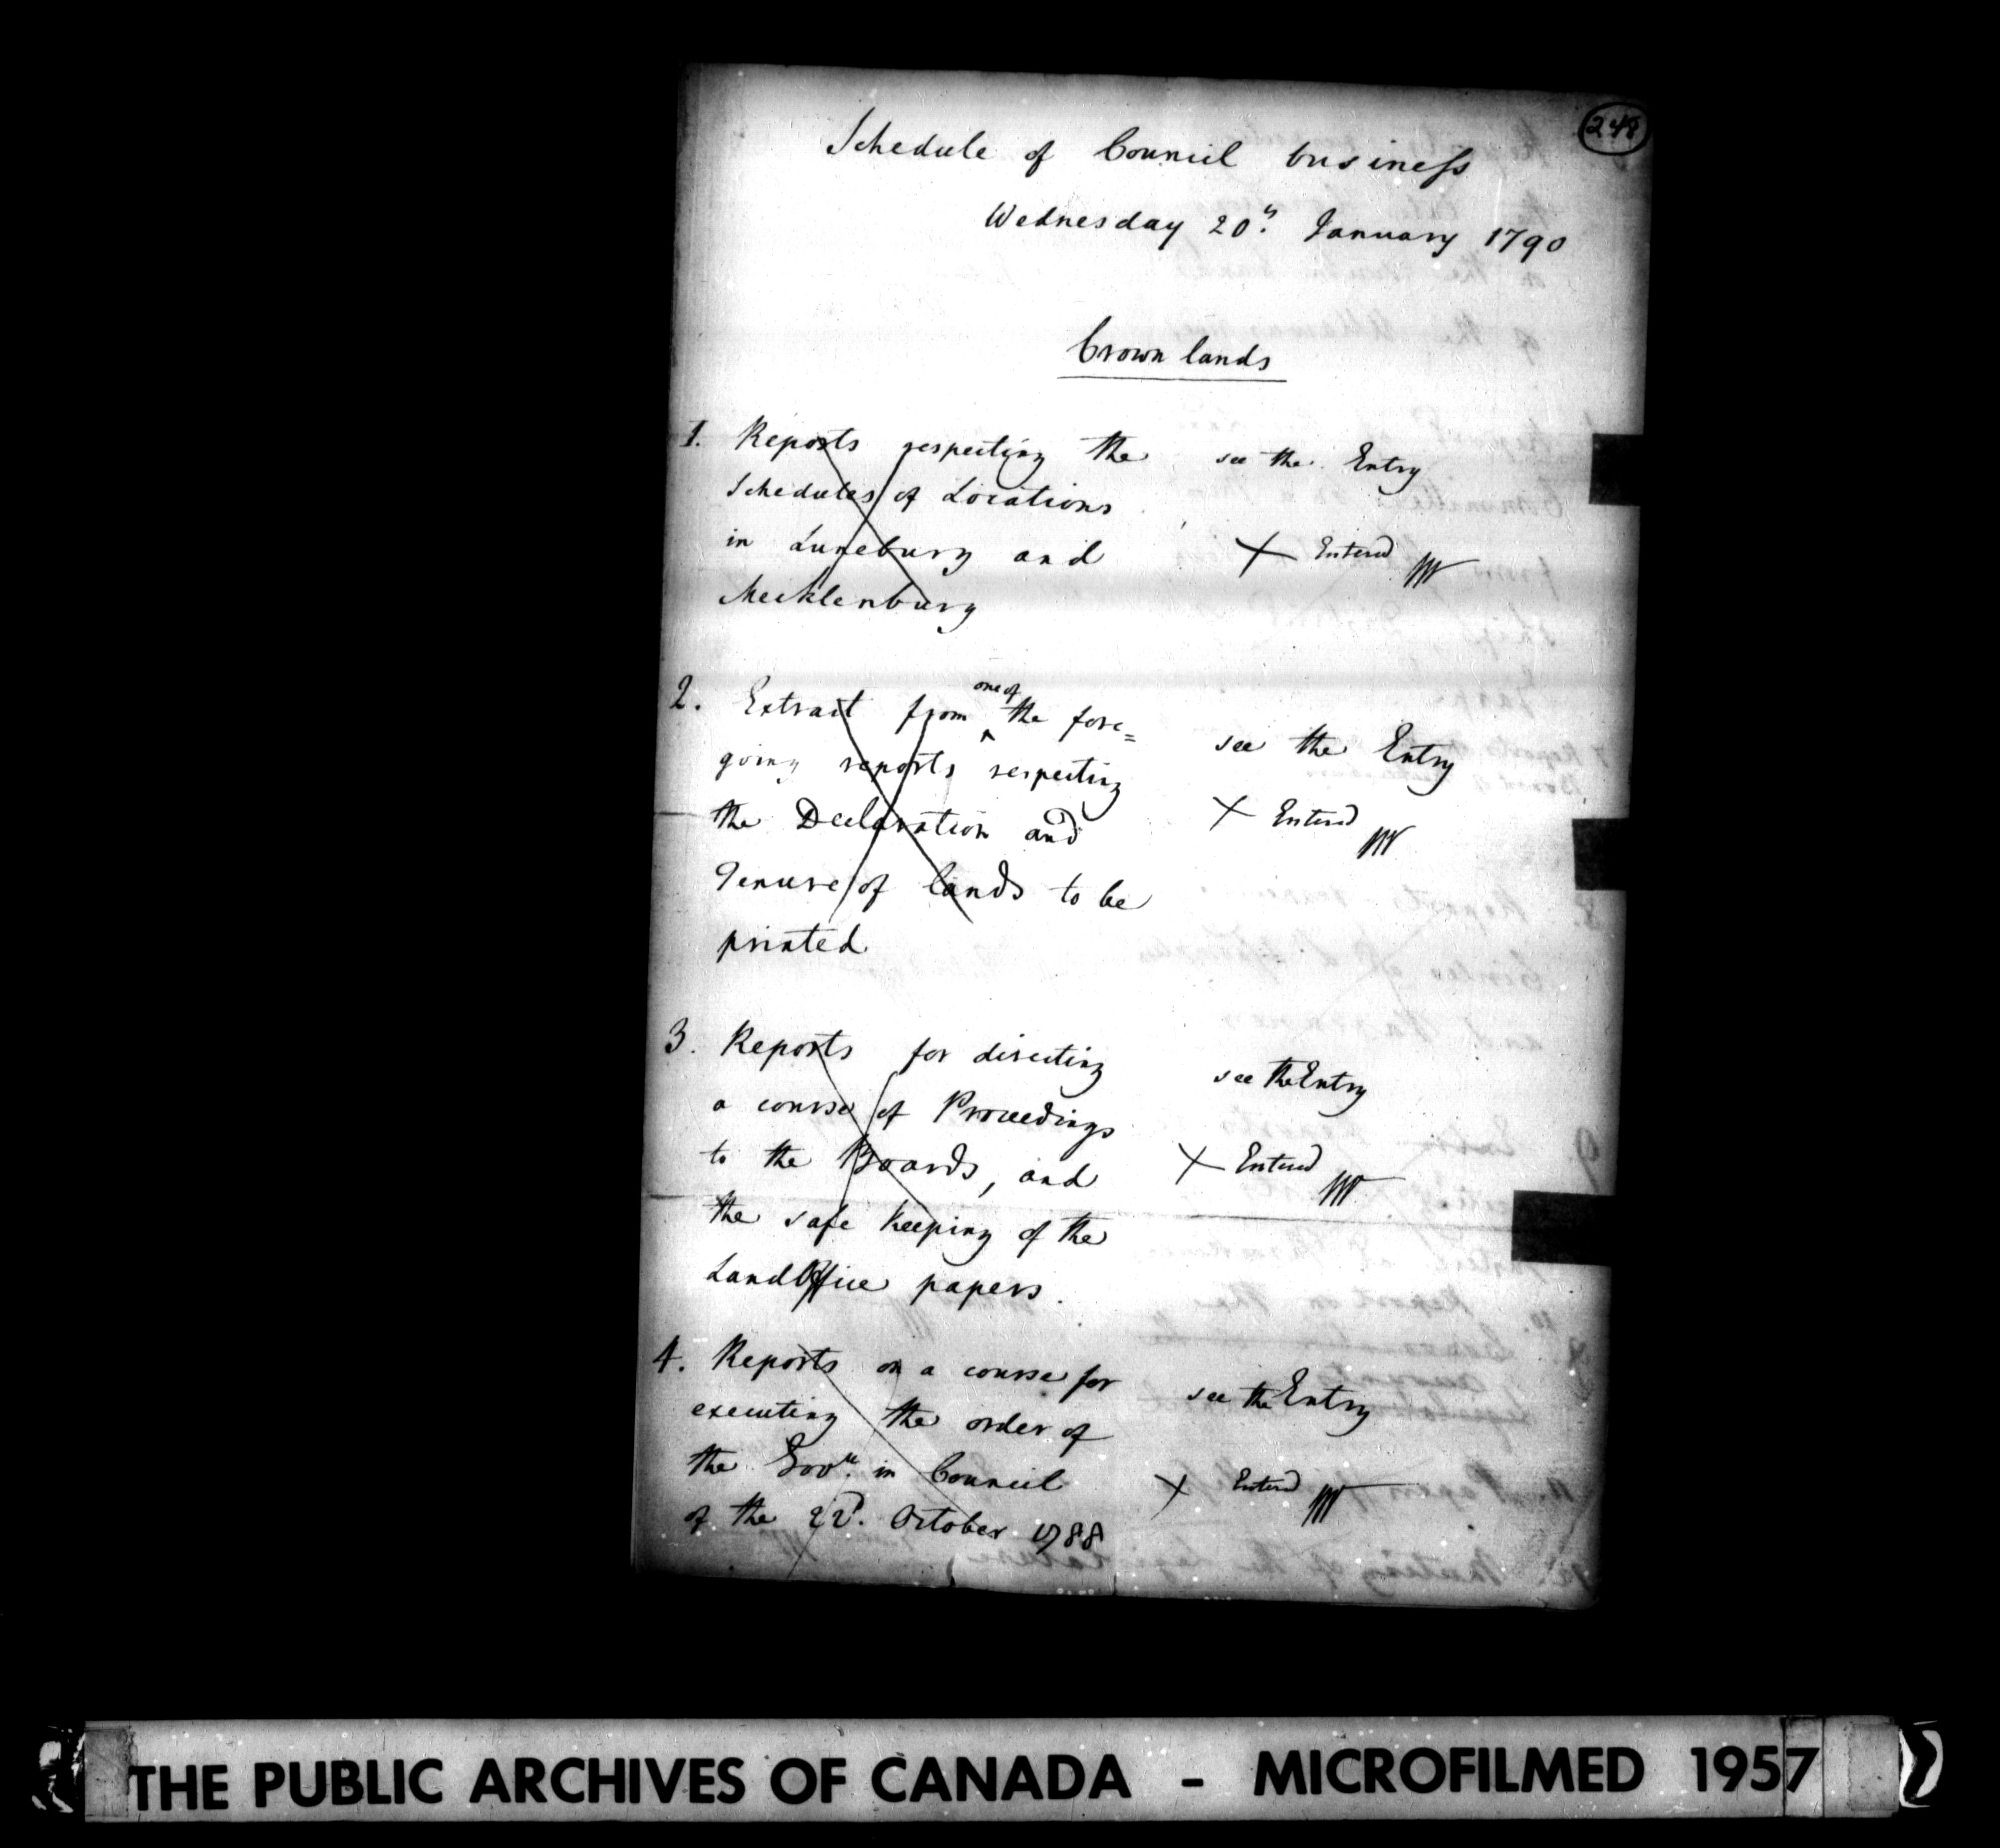 248
Schedule of Council business
Wednesday 20th. January 1790
Crown lands
1. Reports respecting the see the Entry
Schedules of Locations
in Luneburg and X Entered
Mecklenburg
2. Extract from one of the fore=
going reports respecting see the Entry
the Declaration and X Entered
Tenure of lands to be
printed
3. Reports for directing see the Entry
a course of Proceedings
to the Boards, and X Entered
the safe keeping of the
Land Office papers.
4. Reports on a course for see the Entry
executing the order of
the Govr. in Council X Entered
of the 22d. October 1788
THE PUBLIC ARCHIVES OF CANADA - MICROFILMED 1957